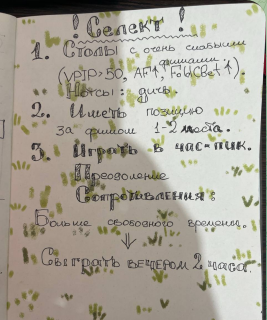 ! Селект !
1. Столы с очень слабыми
фишами
(VPIP>50, AF↑, FoldCBet↑).
Нотсы:
2. Иметь позицию
за фишом 1-2 места.
3. Играть в час-пик.
Преодоление
Сопротивления:
Больше свободного времени.
⇓
Сыграть вечером 2 часа.